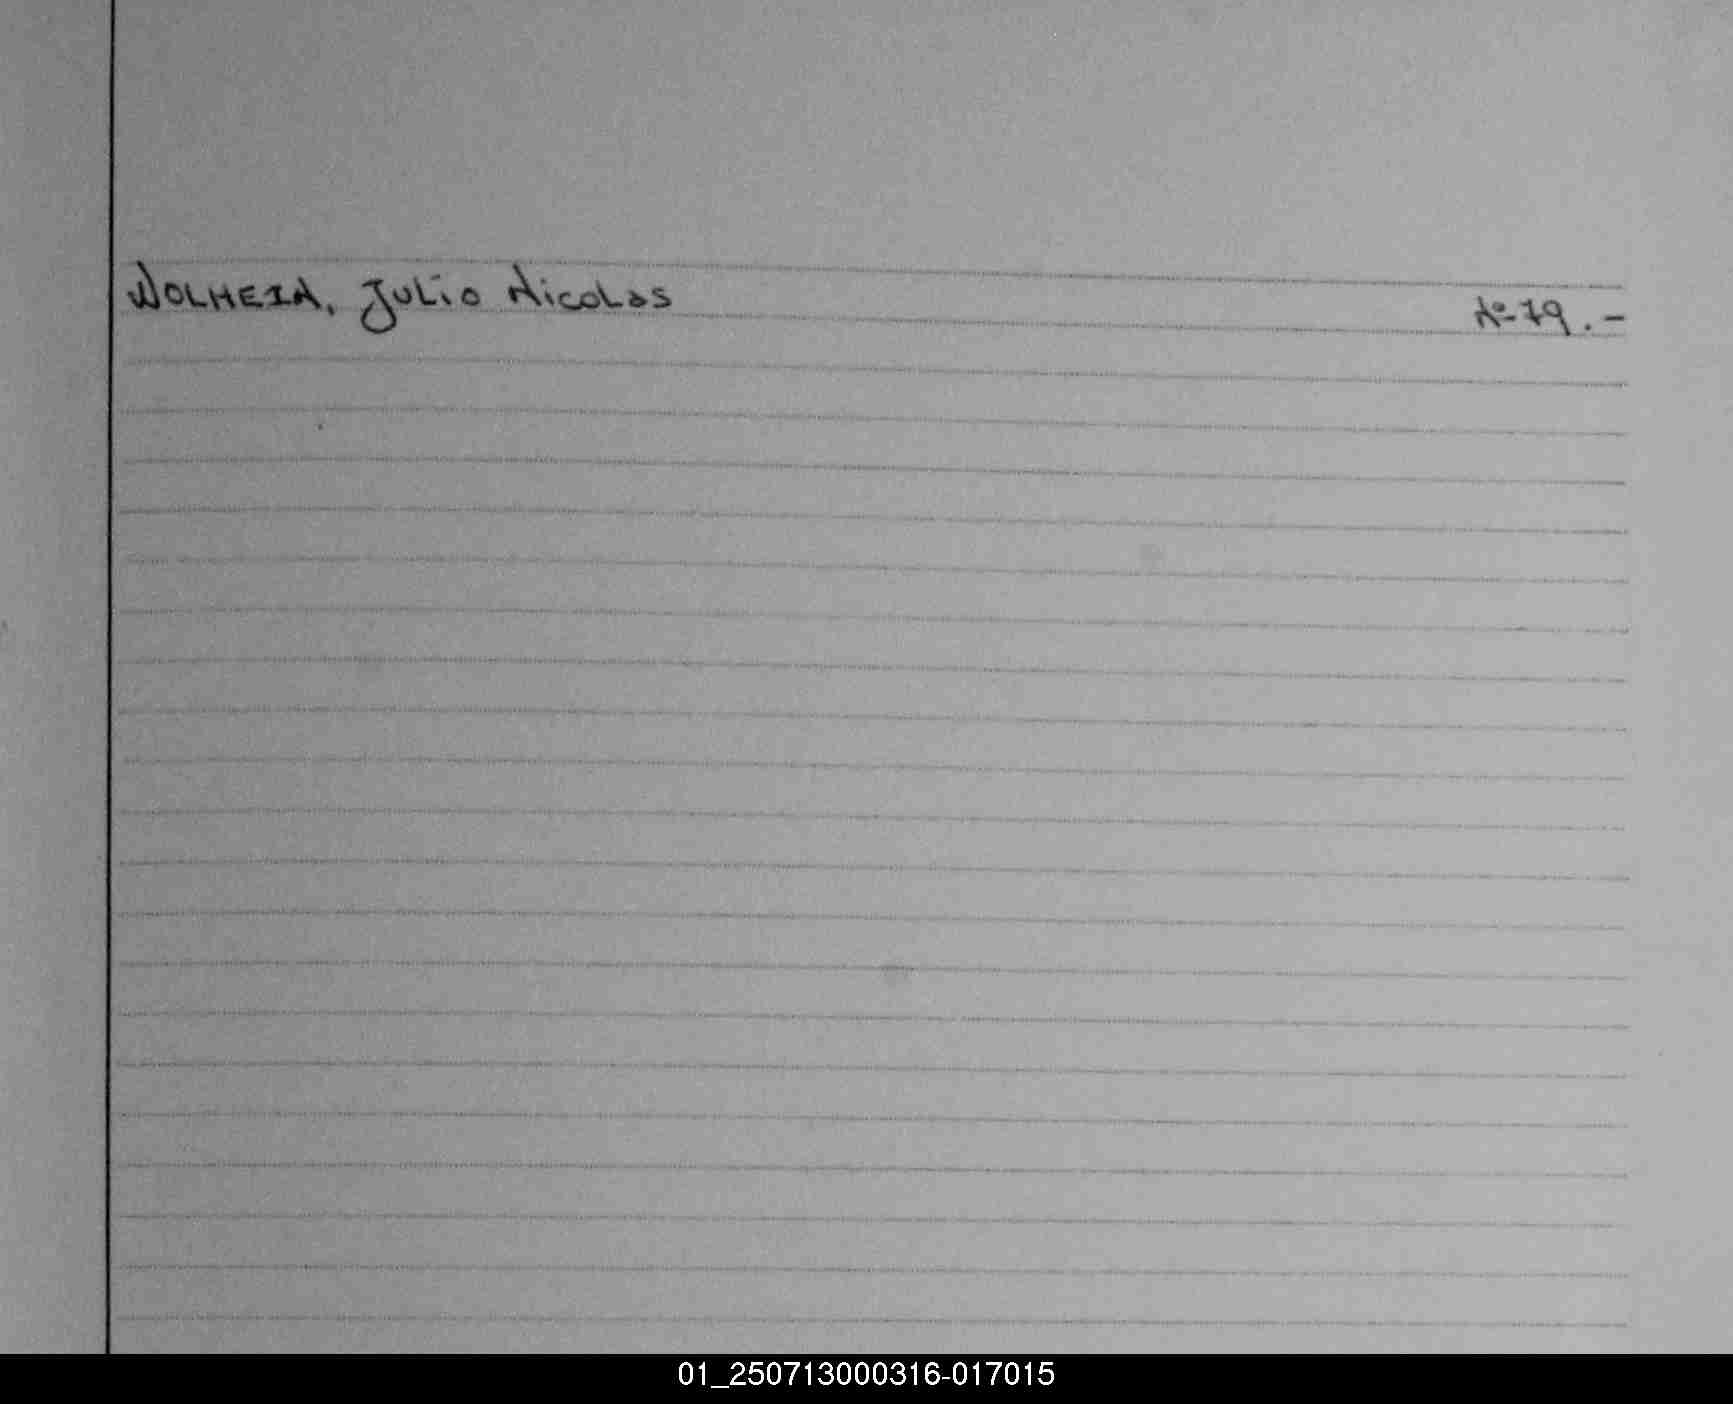 WOLHEIN, Julio Nicolas Nº-79.-
01_250713000316-017015